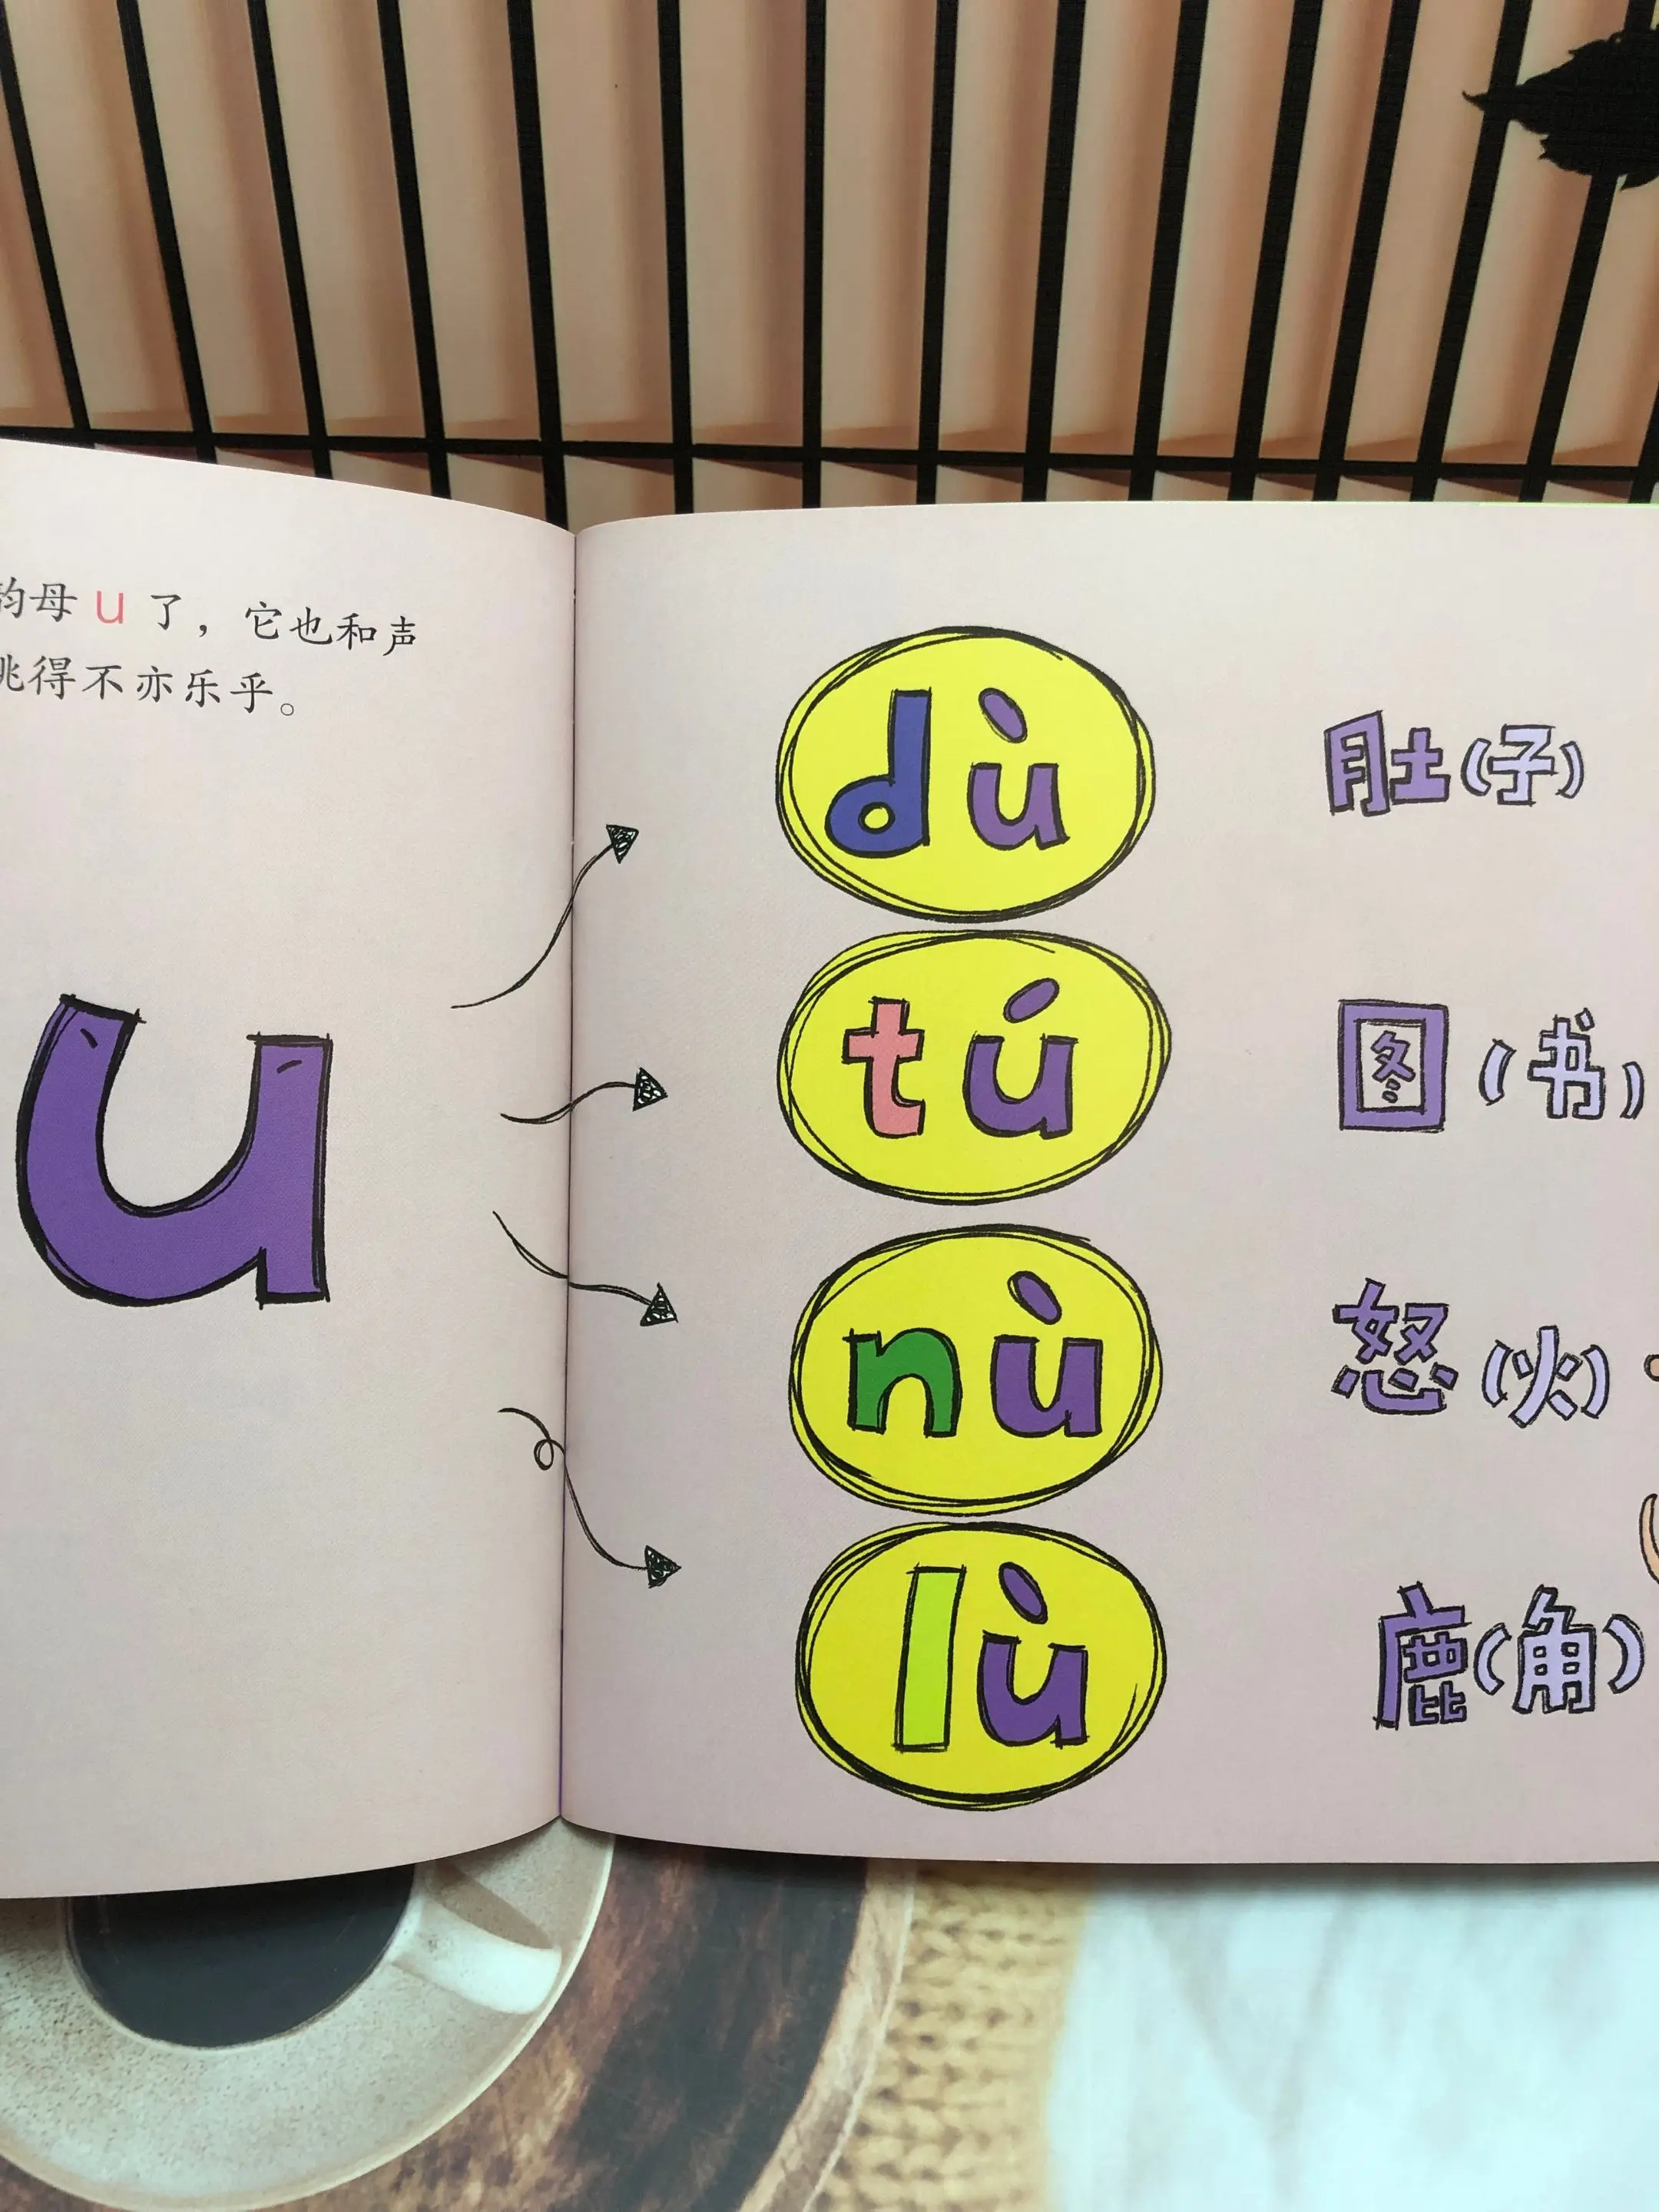 韵母 u 了，它也和声
跳得不亦乐乎。
u
dù 肚(子)
tú 图(书)
nù 怒(火)
lù 鹿(角)